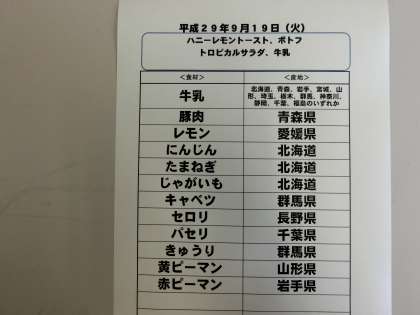 平成29年9月19日（火）
ハニーレモントースト、ポトフ
トロピカルサラダ、牛乳
＜食材＞ ＜産地＞
牛乳 北海道、青森、岩手、宮城、山
形、埼玉、栃木、群馬、神奈川、
静岡、千葉、福島のいずれか
豚肉 青森県
レモン 愛媛県
にんじん 北海道
たまねぎ 北海道
じゃがいも 北海道
キャベツ 群馬県
セロリ 長野県
パセリ 千葉県
きゅうり 群馬県
黄ピーマン 山形県
赤ピーマン 岩手県